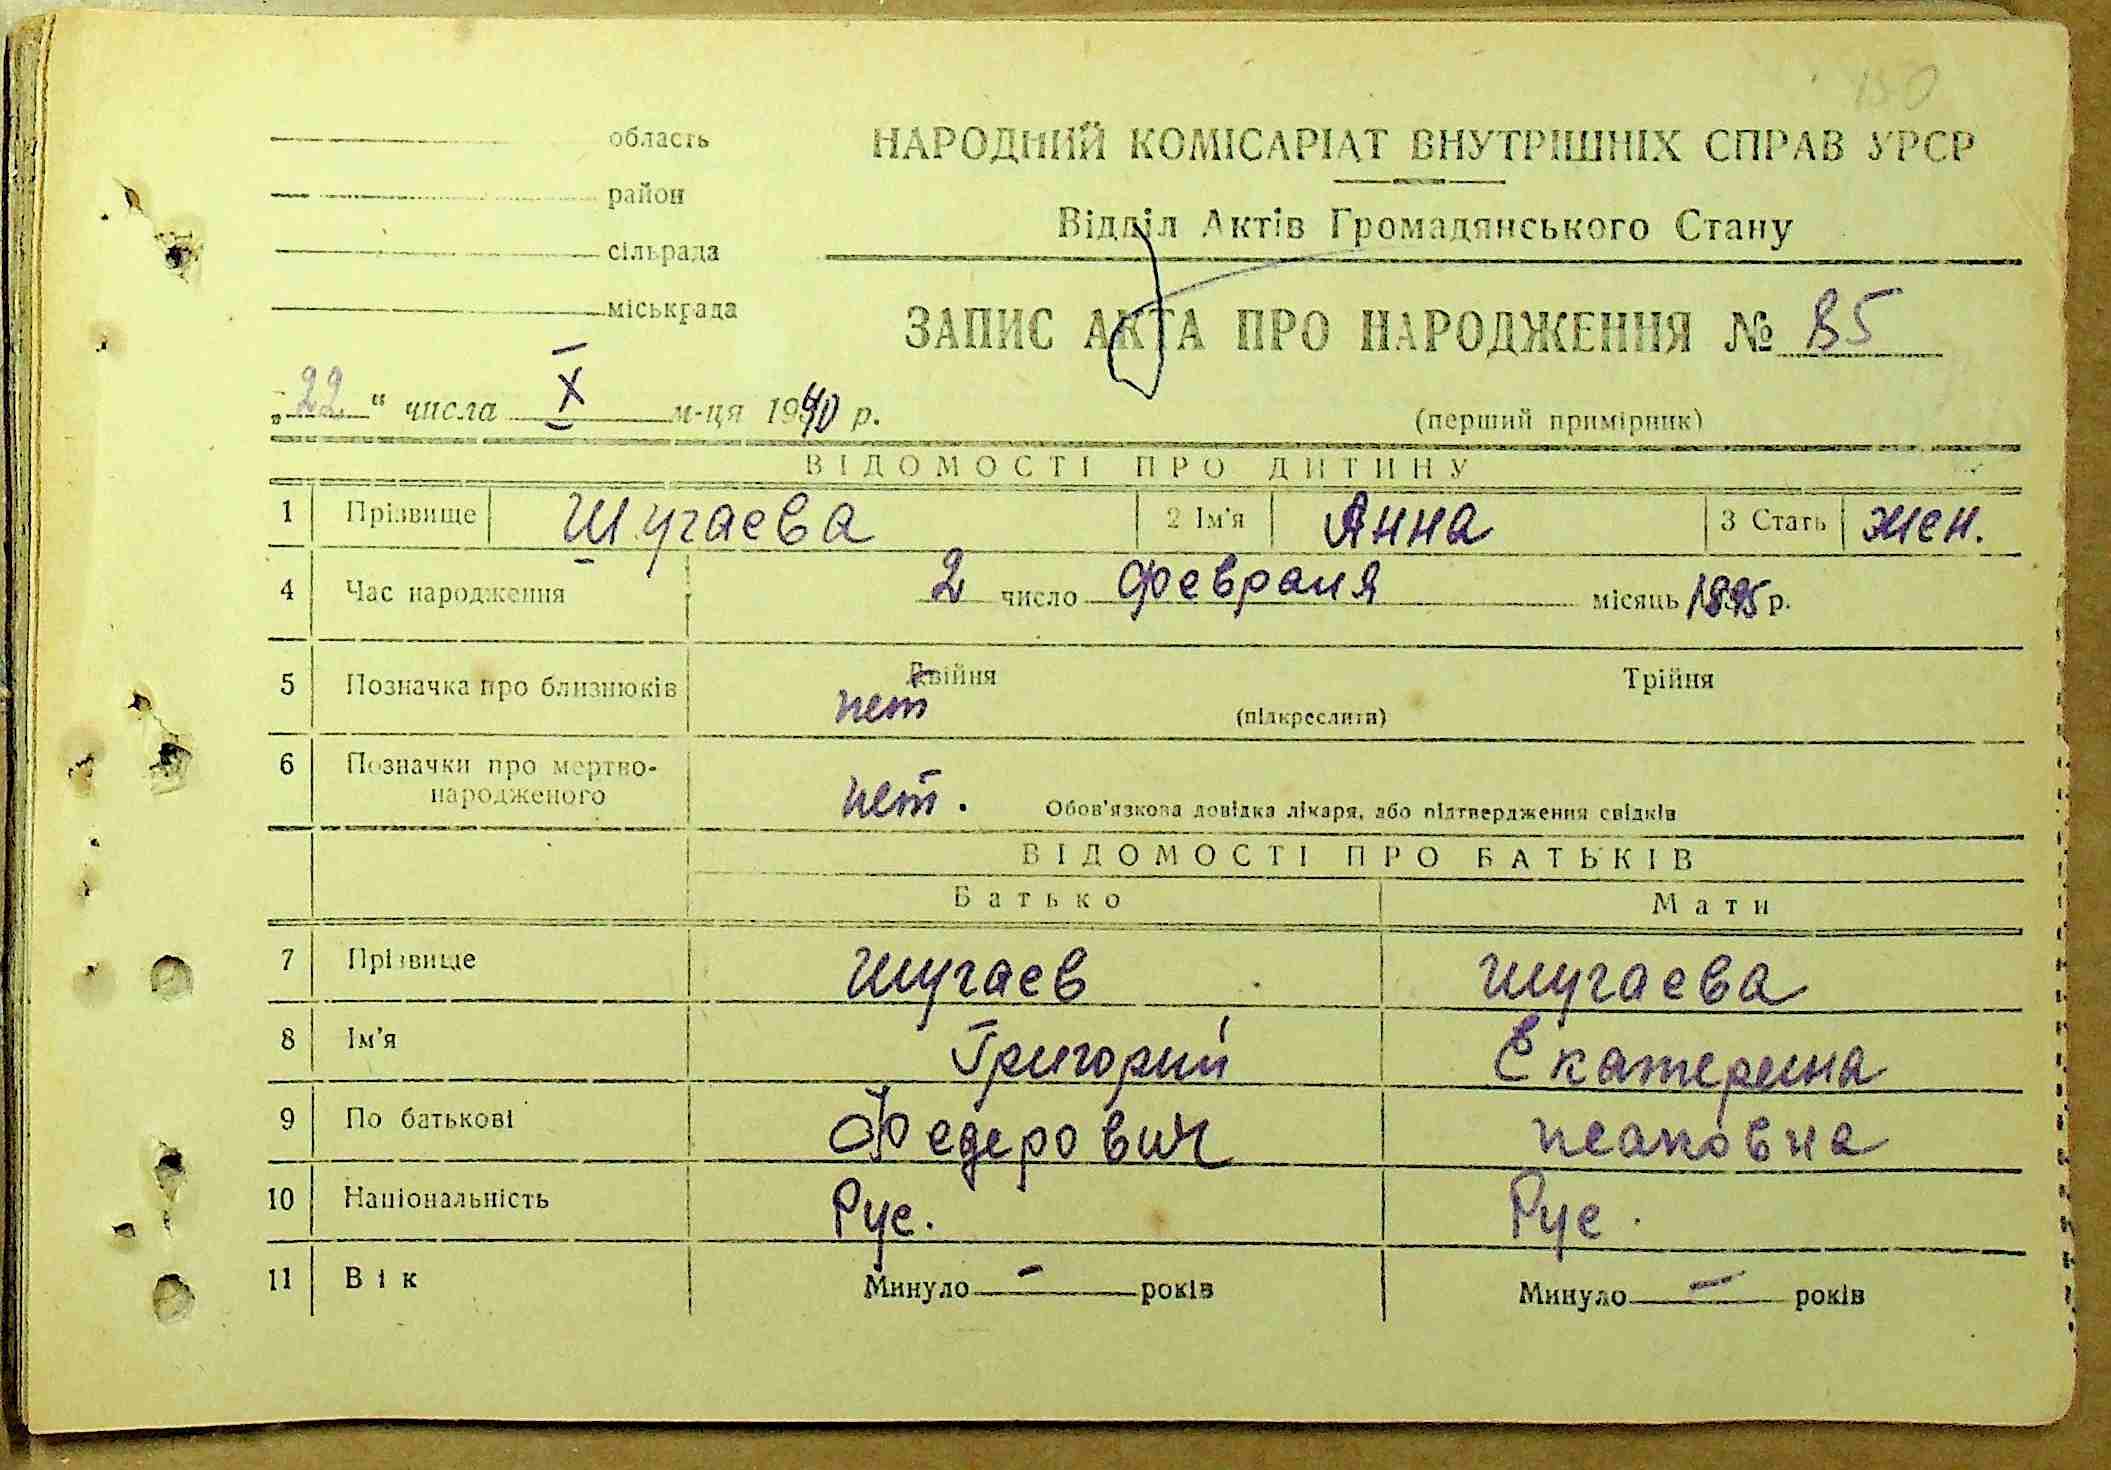 150
область
НАРОДНИЙ КОМІСАРІАТ ВНУТРІШНІХ СПРАВ УРСР
район
Відділ Актів Громадянського Стану
сільрада
міськрада
ЗАПИС АКТА ПРО НАРОДЖЕННЯ № 85
„22“ числа X м-ця 1940 р.
(перший примірник)
ВІДОМОСТІ ПРО ДИТИНУ
1 Прізвище Шугаева 2 Ім'я Анна 3 Стать жен.
4 Час народження 2 число февраля місяць 1895 р.
5 Позначка про близнюків Двійня Трійня
нет (підкреслити)
6 Позначки про мертво-
народженого нет. Обов'язкова довідка лікаря, або підтвердження свідків
ВІДОМОСТІ ПРО БАТЬКІВ
Батько Мати
7 Прізвище Шугаев Шугаева
8 Ім'я Григорий Екатерина
9 По батькові Федерович
10 Національність Рус. Рус.
11 Вік Минуло — років Минуло — років